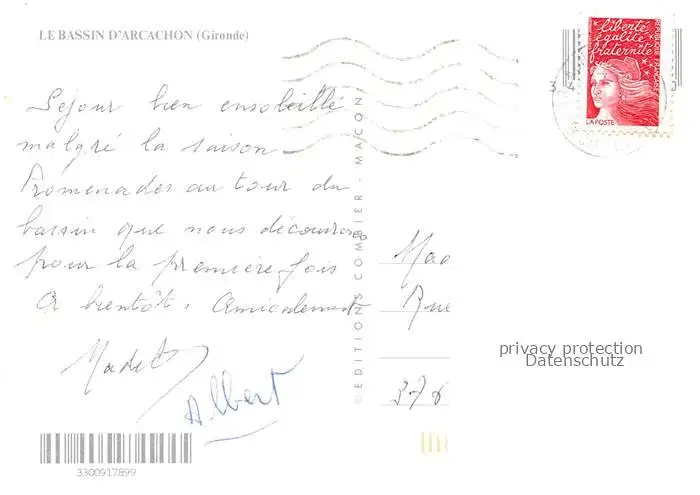 LE BASSIN D'ARCACHON (Gironde)
liberté
égalité
fraternité
REPUBLIQUE FRANÇAISE
LA POSTE
3 4
Séjour bien ensoleillé
malgré la saison
Promenades autour du
bassin que nous découvrons
pour la première fois
A bientôt. Amicalement
Albert
© EDITIONS COMBIER - MACON
Rue
376
privacy protection
Datenschutz
3300917899